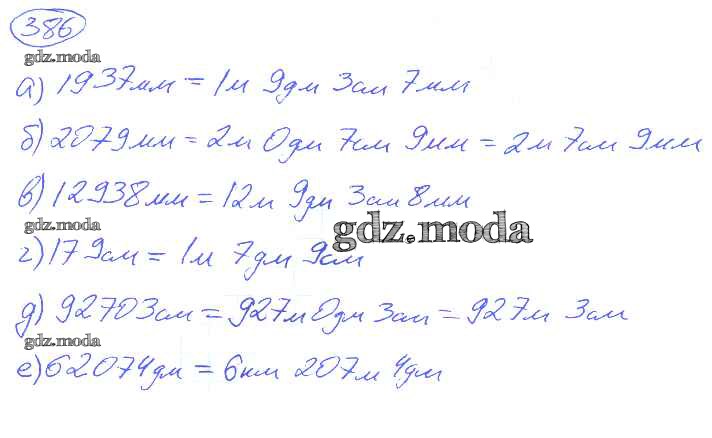 386
gdz.moda
а) 1937мм = 1м 9дм 3см 7мм
б) 2079мм = 2м 0дм 7см 9мм = 2м 7см 9мм
в) 12938мм = 12м 9дм 3см 8мм
gdz.moda
gdz.moda
г) 179см = 1м 7дм 9см
д) 92703см = 927м 0дм 3см = 927м 3см
gdz.moda
е) 62074дм = 6км 207м 4дм